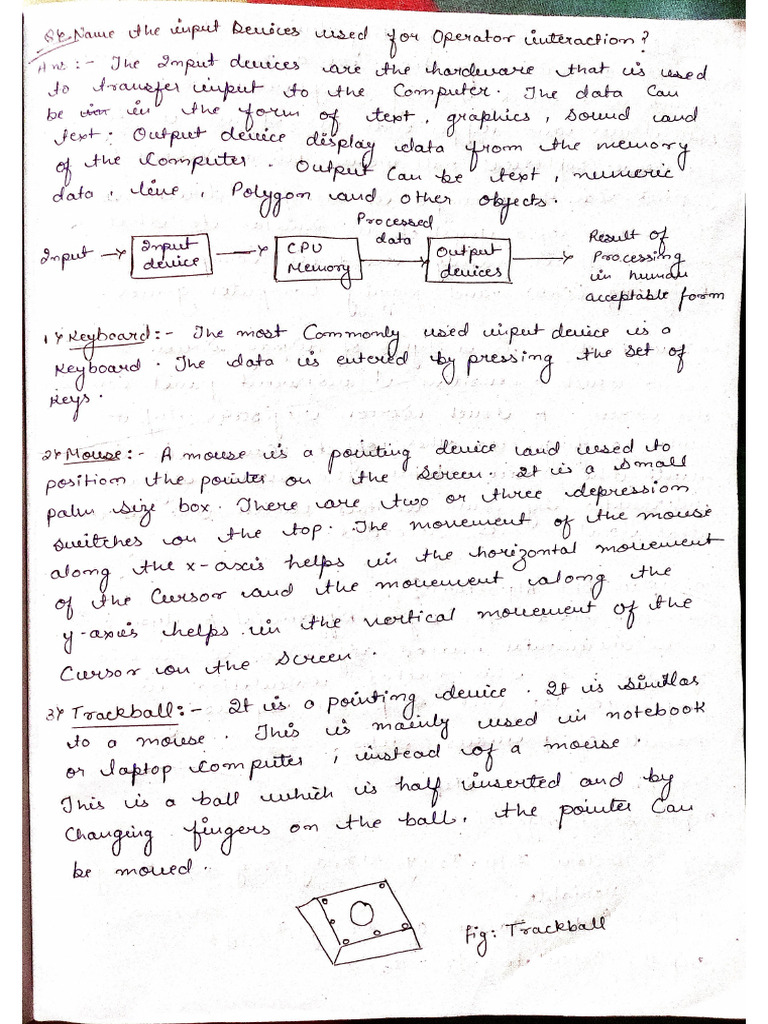 Q8. Name the input Devices used for Operator interaction?
Ans :- The Input devices are the hardware that is used
to transfer input to the Computer. The data Can
be in the form of text, graphics, sound and
text. Output device display data from the memory
of the Computer. Output Can be text, numeric
data, line, Polygon and other objects.
Input → Input device → CPU Memory → Processed data → Output devices → Result of Processing in human acceptable form
1) Keyboard:- The most Commonly used input device is a
Keyboard. The data is entered by pressing the set of
keys.
2) Mouse:- A mouse is a pointing device and used to
position the pointer on the screen. It is a small
palm size box. There are two or three depression
switches on the top. The movement of the mouse
along the x-axis helps in the horizontal movement
of the Cursor and the movement along the
y-axis helps in the vertical movement of the
Cursor on the Screen.
3) Trackball:- It is a pointing device. It is similar
to a mouse. This is mainly used in notebook
or laptop Computer, instead of a mouse.
This is a ball which is half inserted and by
Changing fingers on the ball, the pointer Can
be moved.
fig: Trackball